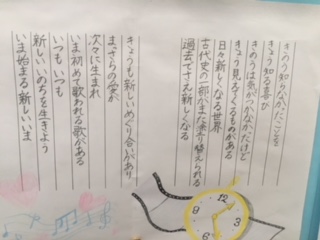 きのう知らなかったことを
きょう知る喜び
きのうは気がつかなかったけど
きょう見えてくるものがある
日々新しくなる世界
古代史の一部がまた塗り替えられる
過去でさえ新しくなる
きょうも新しいめぐり合いがあり
まっさらの愛が
次々に生まれ
いま初めて歌われる歌がある
いつも いつも
新しいいのちを生きよう
いま始まる新しいいま
12
3
6
9